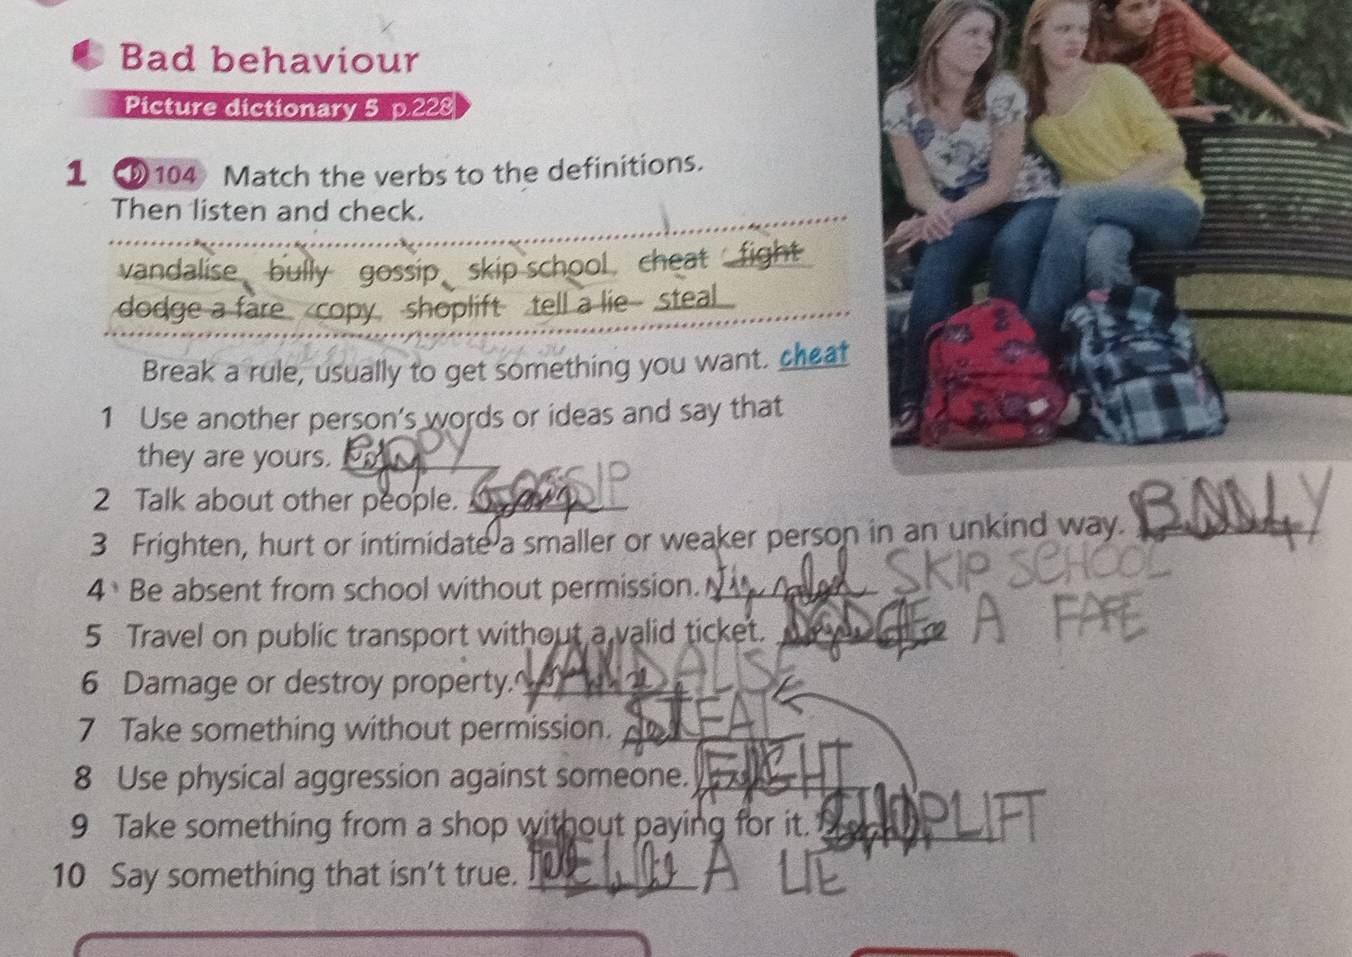 Bad behaviour
Picture dictionary 5 p.228
1 104 Match the verbs to the definitions.
Then listen and check.
vandalise bully gossip skip school cheat fight
dodge a fare copy shoplift tell a lie steal
Break a rule, usually to get something you want. cheat
1 Use another person's words or ideas and say that
they are yours.
2 Talk about other people. GOSSIP
3 Frighten, hurt or intimidate a smaller or weaker person in an unkind way.
4 Be absent from school without permission. SKIP SCHOOL
5 Travel on public transport without a valid ticket. DODGE A FARE
6 Damage or destroy property. VANDALISE
7 Take something without permission. STEAL
8 Use physical aggression against someone. FIGHT
9 Take something from a shop without paying for it. SHOPLIFT
10 Say something that isn't true. TELL A LIE